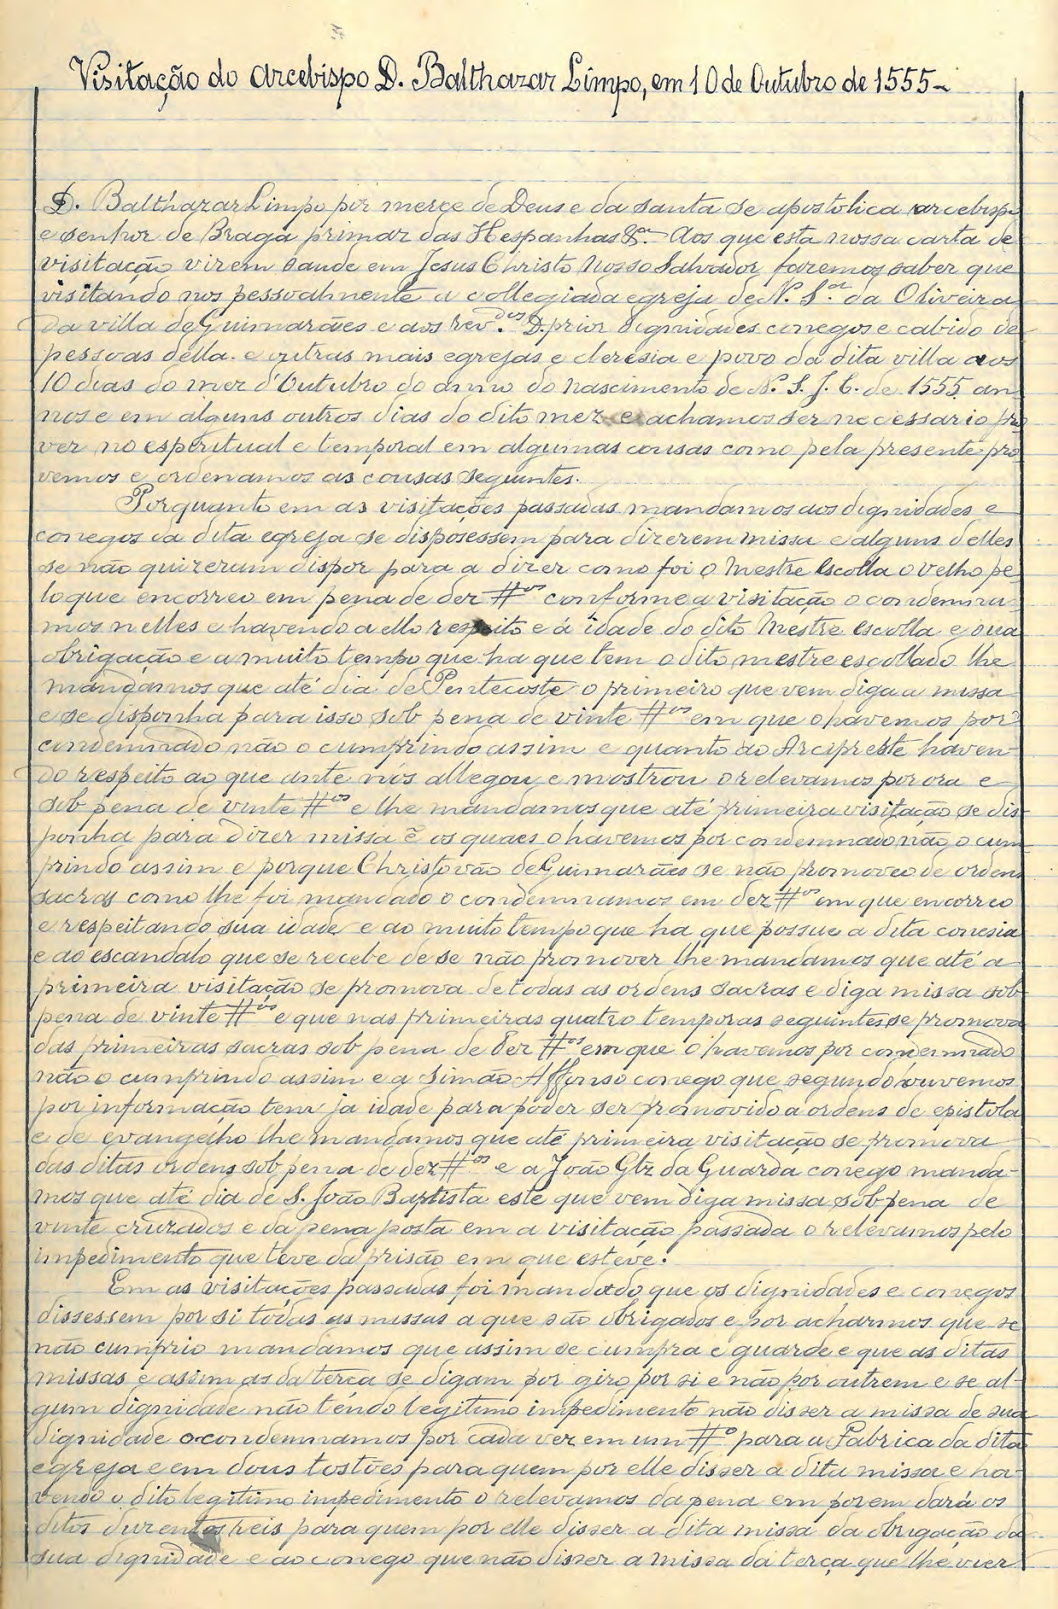 Visitação do Arcebispo D. Balthazar Limpo, em 10 de Outubro de 1555-
D. Balthazar Limpo por merçe de Deus e da Santa Se apostolica arcebispo
e senhor de Braga primaz das Hespanhas &.ª Aos que esta nossa carta de
visitação virem saude em Jesus Christo Nosso Salvador, fazemos saber que
visitando nos pessoalmente a collegiada egreja de N. S.ra da Oliveira
da villa de Guimarães e aos rev.dos D. prior dignidades conegos e cabido de
pessoas della e outras mais egrejas e cleresia e povo da dita villa aos
10 dias do mez d'Outubro do anno do Nascimento de N. S. J. C. de 1555 an
nos e em alguns outros dias do dito mez e achamos ser necessario pro
ver no espiritual e temporal em algumas cousas como pela presente pro
vemos e ordenamos as cousas seguintes.
Porquanto em as visitações passadas mandamos aos dignidades e
conegos da dita egreja se disposessem para dizerem missa e alguns delles
se não quizeram dispor para a dizer como foi o Mestre Escolla o velho pe
lo que encorreo em pena de dez #os conforme a visitação o condemna-
mos nelles e havendo a ello respeito e á idade do dito Mestre Escolla e sua
obrigação e a muito tempo que ha que tem o dito mestre escollado lhe
mandamos que até dia de Pentecoste o primeiro que vem diga a missa
e se disponha para isso sob pena de vinte #os em que o havemos por
condemnado não o cumprindo assim e quanto ao Arcipreste haven-
do respeito ao que ante nós allegou e mostrou o relevamos por ora e
sob pena de vinte #os e lhe mandamos que até primeira visitação se dis-
ponha para dizer missa ẽ os quaes o havemos por condemnado não o cum
prindo assim e porque Christovão de Guimarães se não promoveo de ordens
sacras como lhe foi mandado o condemnamos em dez #os em que encorreo
e respeitando sua idade e ao muito tempo que ha que possue a dita conesia
e ao escandalo que se recebe de se não promover lhe mandamos que até a
primeira visitação se promova de todas as ordens sacras e diga missa sob
pena de vinte #os e que nas primeiras quatro temporas seguintes se promova
das primeiras sacras sob pena de dez #os em que o havemos por condemnado
não o cumprindo assim e a Simão Affonso conego que segundo ouvemos
por informação tem ja idade para poder ser promovido a ordens de epistola
e de evangelho lhe mandamos que até primeira visitação se promova
das ditas ordens sob pena de dez #os e a João Glz da Guarda conego manda-
mos que até dia de S. João Baptista este que vem diga missa sob pena de
vinte cruzados e da pena posta em a visitação passada o relevamos pelo
impedimento que teve da prisão em que esteve.
Em as visitações passadas foi mandado que os dignidades e conegos
dissessem por si todas as missas a que são obrigados e por acharmos que se
não cumprio mandamos que assim se cumpra e guarde e que as ditas
missas e assim as da terça se digam por giro por si e não por outrem e se al-
gum dignidade não tendo legitimo impedimento não disser a missa de sua
dignidade o condemnamos por cada vez em um #o para a Fabrica da dita
egreja e em dous tostões para quem por elle disser a dita missa e ha-
vendo o dito legitimo impedimento o relevamos da pena em porem dará os
ditos duzentos reis para quem por elle disser a dita missa da obrigação da
sua dignidade e ao conego que não disser a missa da terça que lhe vier